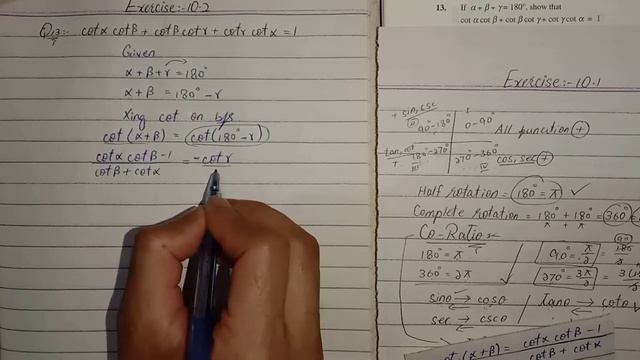 Exercise:-10.2
Q13:- cotα cotβ + cotβ cotr + cotr cotα = 1
Given
α + β + r = 180°
α + β = 180° - r
Xing cot on b/s
cot (α+β) = cot(180° - r)
cotα cotβ - 1 / cotβ + cotα = - cotr
13. If α + β + γ = 180°, show that
cot α cot β + cot β cot γ + cot γ cot α = 1
Exercise:-10.1
+ sin, csc
II 90°-180°
0-90°
All function +
tan, cot +
180°-270° III
270°-360° IV
cos, sec +
Half rotation = 180° = π
Complete rotation = 180° + 180° = 360°
π π
Co-Ratio
180° = π
90° = π/2
360° = 2π
270° = 3π/2
sinθ ⇄ cosθ
tanθ ⇄ cotθ
sec ⇄ cscθ
cot (α+β) = cotα cotβ - 1 / cotβ + cotα